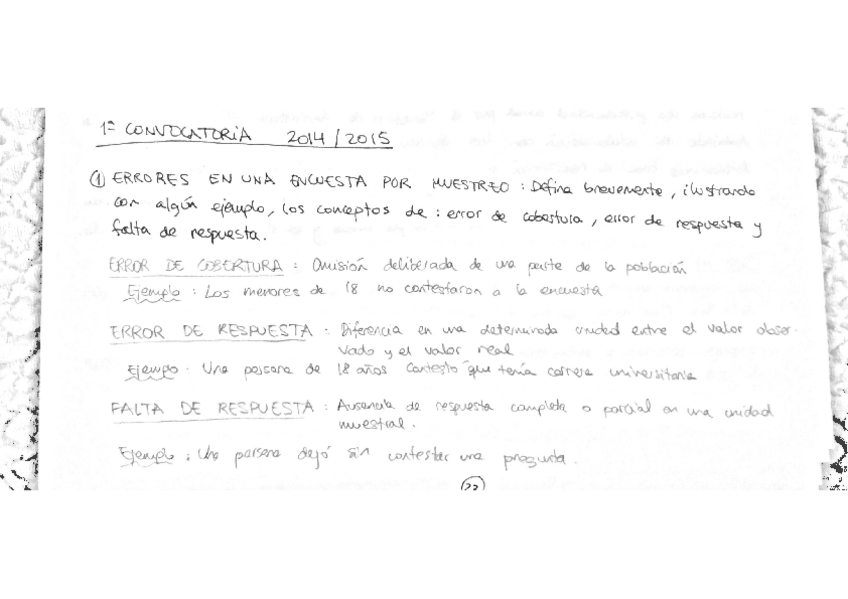 1ª CONVOCATORIA 2014/2015
① ERRORES EN UNA ENCUESTA POR MUESTREO : Defina brevemente, ilustrando
con algún ejemplo, los conceptos de : error de cobertura, error de respuesta y
falta de respuesta.
ERROR DE COBERTURA : Omisión deliberada de una parte de la población
Ejemplo : Los menores de 18 no contestaron a la encuesta
ERROR DE RESPUESTA : Diferencia en una determinada unidad entre el valor obser-
vado y el valor real
Ejemplo : Una persona de 18 años contesto que tenía carrera universitaria
FALTA DE RESPUESTA : Ausencia de respuesta completa o parcial en una unidad
muestral.
Ejemplo : Una persona dejó sin contestar una pregunta.